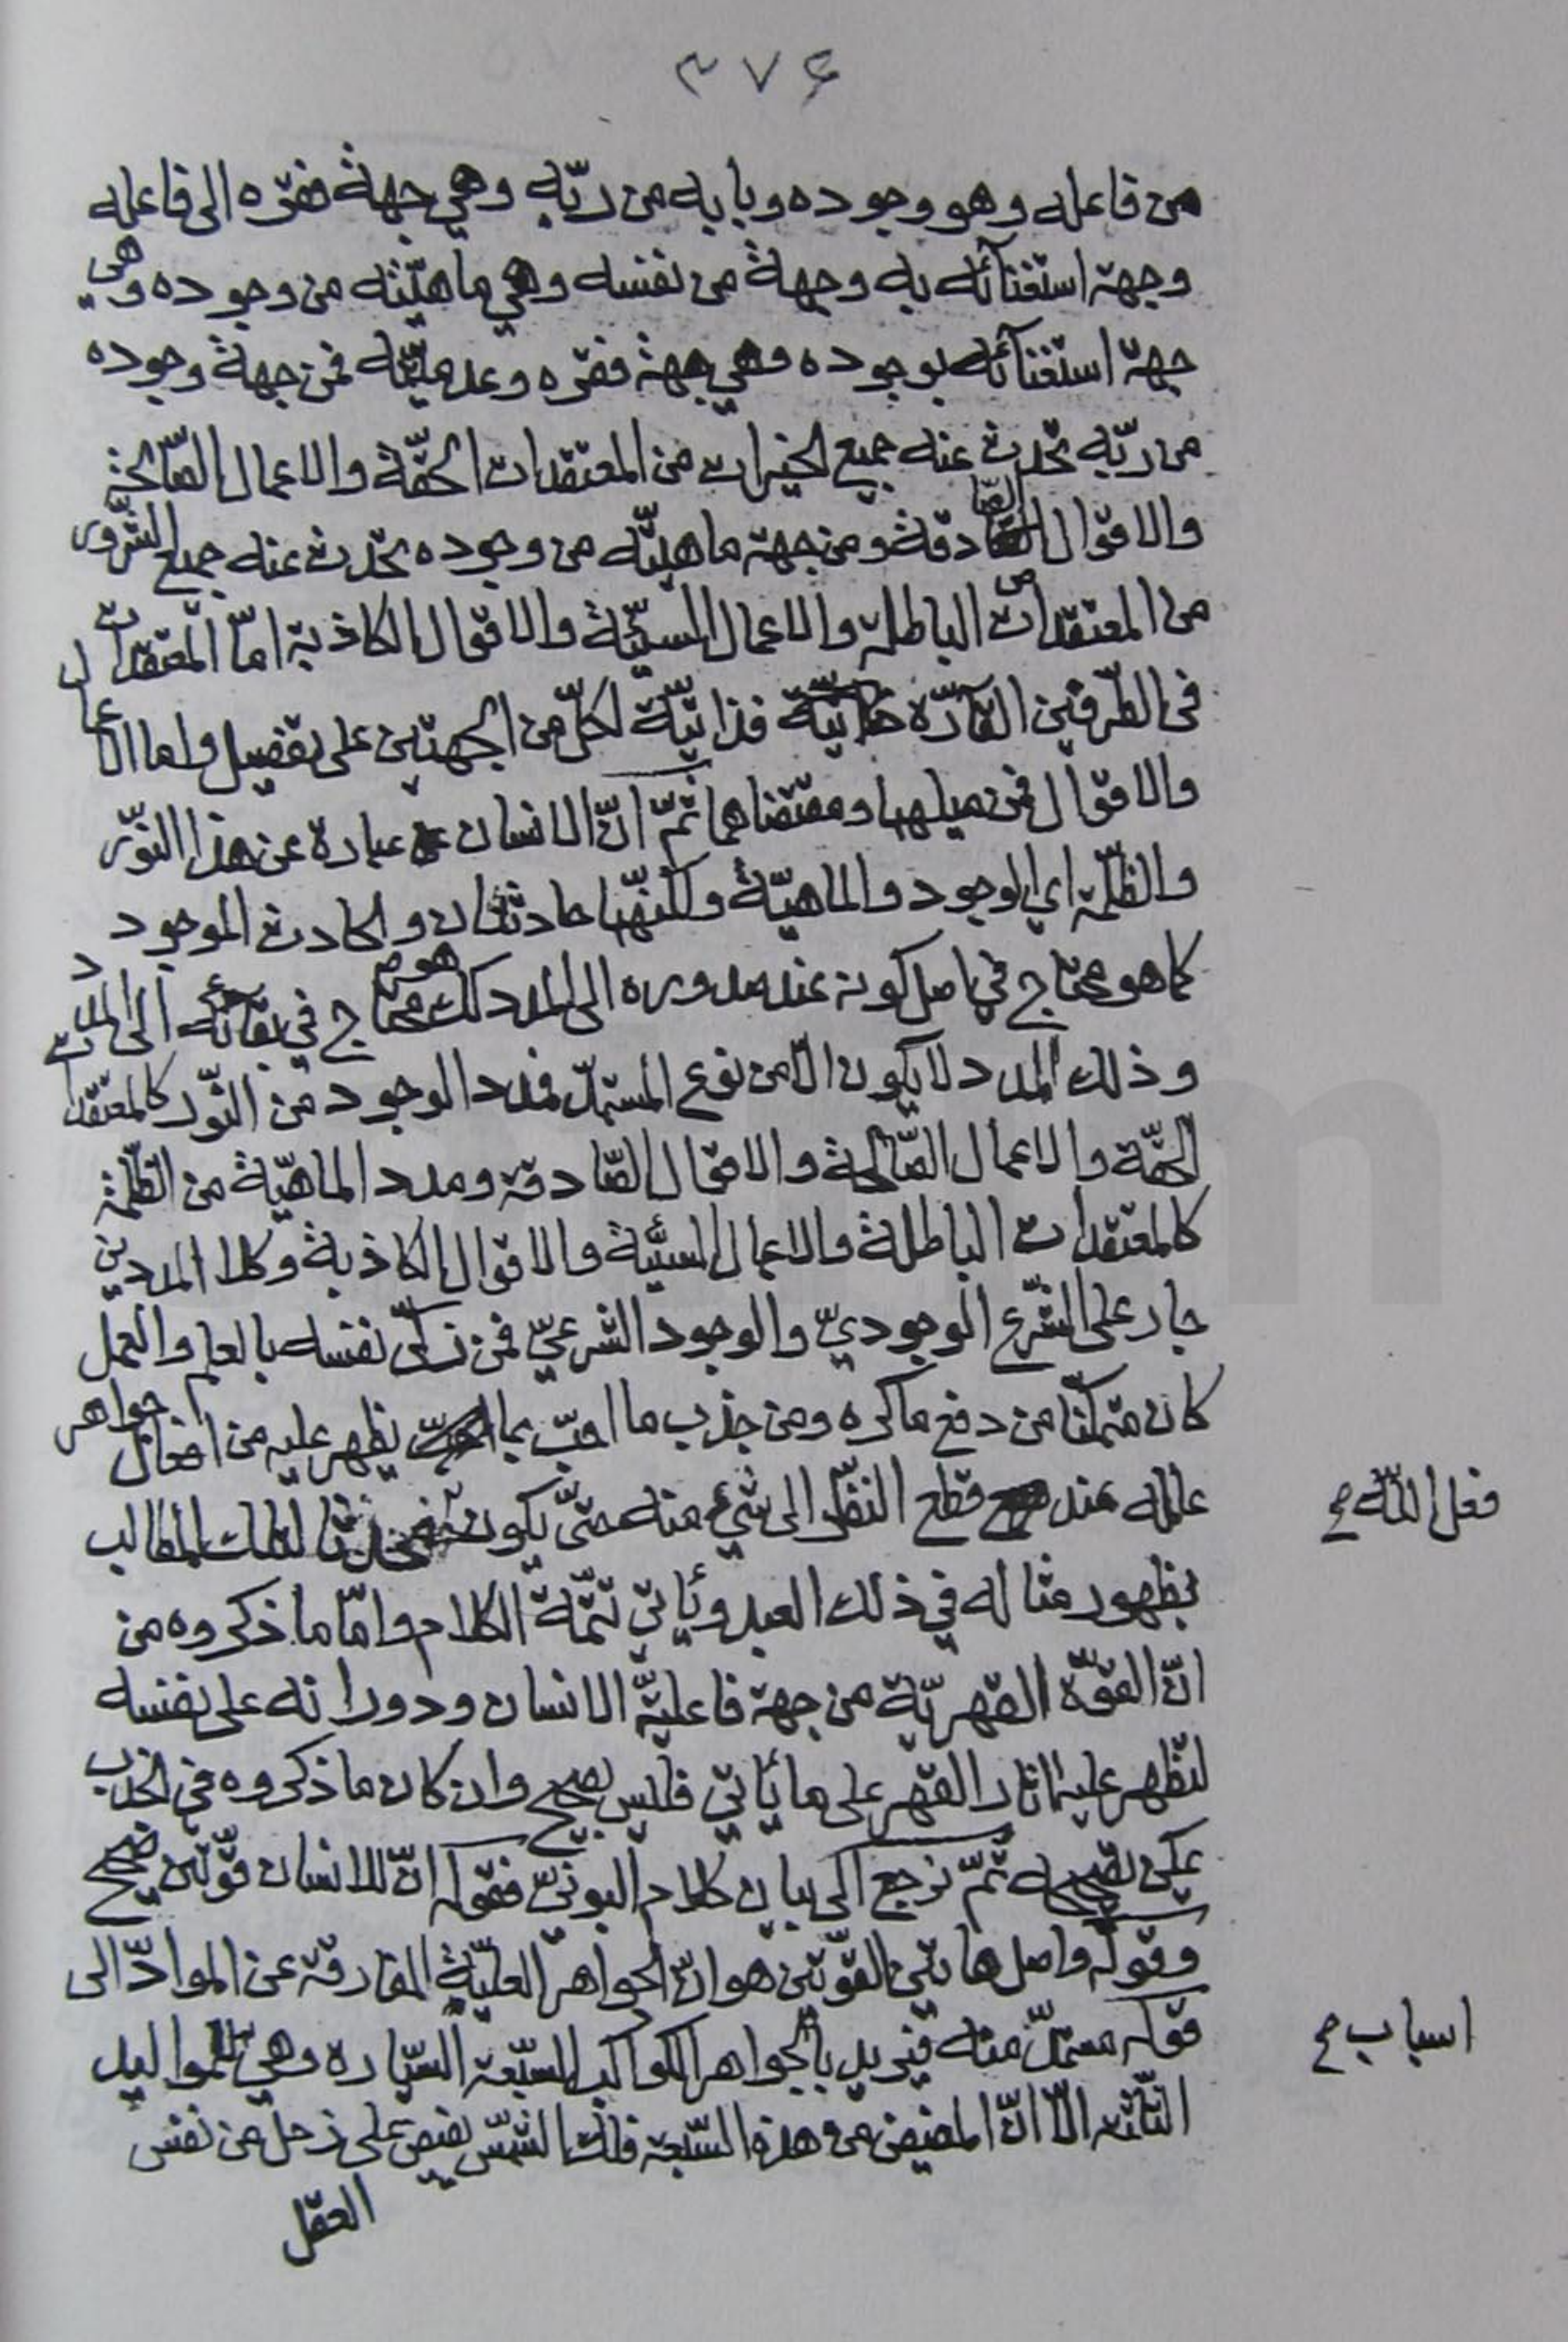 ٣٧۶
من فاعله وهو وجوده وبابه من ربّه وهي جهة فقره الى فاعله
وجهة استغنائه به وجهة من نفسه وهي ماهيّته من وجوده وهى
جهة استغنائه بوجوده وهي جهة فقره وعدميّته فمن جهة وجوده
من ربّه تحدث عنه جميع الخيرات من المعتقدات الحقّة والاعمال الصّالحة
والاقوال الصّادقة ومن جهة ماهيّته من وجوده تحدث عنه جميع الشّرور
من المعتقدات الباطلة والاعمال السيّئة والاقوال الكاذبة امّا المعتقدات
فى الطّرفين القارّة فذاتيّة لكلّ من الجهتين على تفصيل واما الاعمال
والاقوال فمن ميلهما ومقتضاهما ثمّ انّ الانسان عبارة عن هذا النّور
والظّلمة اي الوجود والماهيّة ولكنّهما حادثتان والحادث الموجود
كما هو محتاج في اصل كونه عند صدوره الى المدد كك هو محتاج في بقائه الى المدد
وذلك المدد لا يكون الّا من نوع المستمدّ فمدد الوجود من النّور كالمعتقدات
الحقّة والاعمال الصّالحة والاقوال الصّادقة ومدد الماهيّة من الظّلمة
كالمعتقدات الباطلة والاعمال السيّئة والاقوال الكاذبة وكلا المددين
جار على الشّرع الوجوديّ والوجود الشرعيّ فمن زكّى نفسه بالعلم والعمل
كان متمكّنا من دفع ما كره ومن جذب ما احبّ بما يظهر عليه من افعال جواهر
علله عند قطع النّظر الى شيء منه حتّى يكون محدثا لتلك المطالب
فعل اللّه صح
بظهور مثاله في ذلك العبد ويأتي تتمّة الكلام وامّا ما ذكروه من
انّ القوّة القهريّة من جهة فاعليّة الانسان ودورانه على نفسه
لتظهر عليه اثار القهر على ما يأتي فليس بصحيح وان كان ما ذكروه في الجذب
يمكن تصحيحه ثمّ نرجع الى بيان كلام البونيّ فقوله انّ للانسان قوّتين صحيح
وقوله واصل هاتين القوّتين هو انّ الجواهر العليّة المفارقة عن الموادّ الى
قوله مستمدّ منه فيريد بالجواهر الكواكب السّبعة السّيّارة وهي للمواليد
اسباب صح
الثلثة الّا انّ المفيض من هذه السّبعة فلك الشّمس يفيض على زحل من نفس
العقل